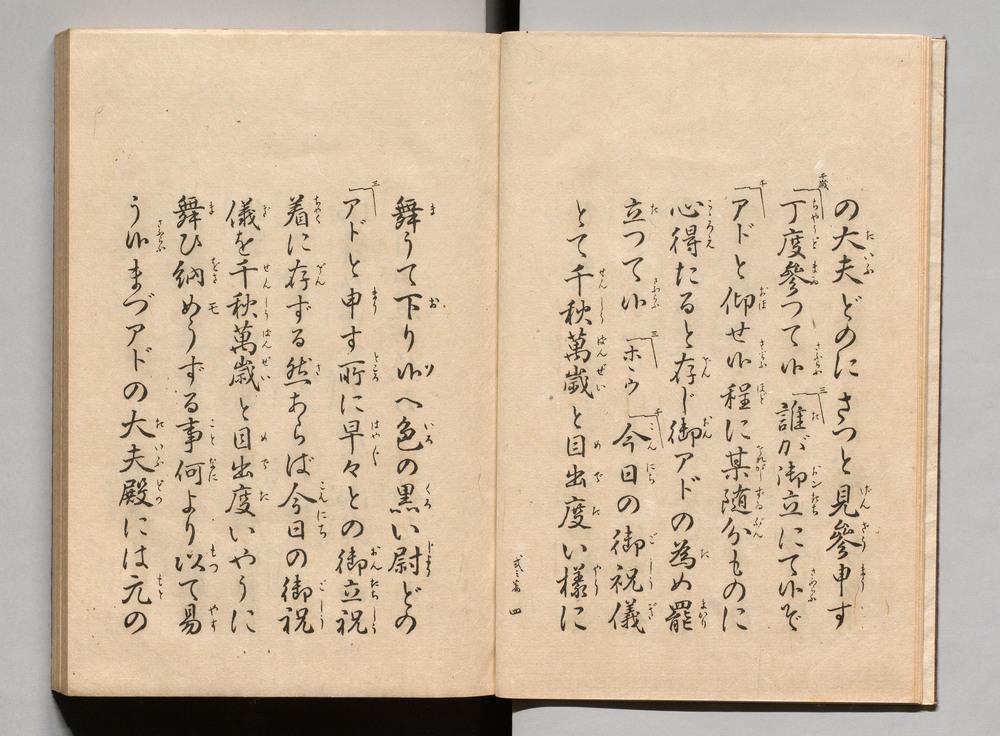 の大夫どのにさつと見參申す
千歳 丁度參つて候 三 誰が御立にて候ぞ
千 アドと仰せ候程に某随分ものに
心得たると存じ御アドの為め罷
立つて候 三 ホヽウ 千 今日の御祝儀
とて千秋萬歳と目出度い様に
四
舞うて下り候へ色の黒い尉どの
三 アドと申す所に早々との御立祝
着に存ずる然あらば今日の御祝
儀を千秋萬歳と目出度いやうに
舞ひ納めうずる事何より以て易
う候まづアドの大夫殿には元の